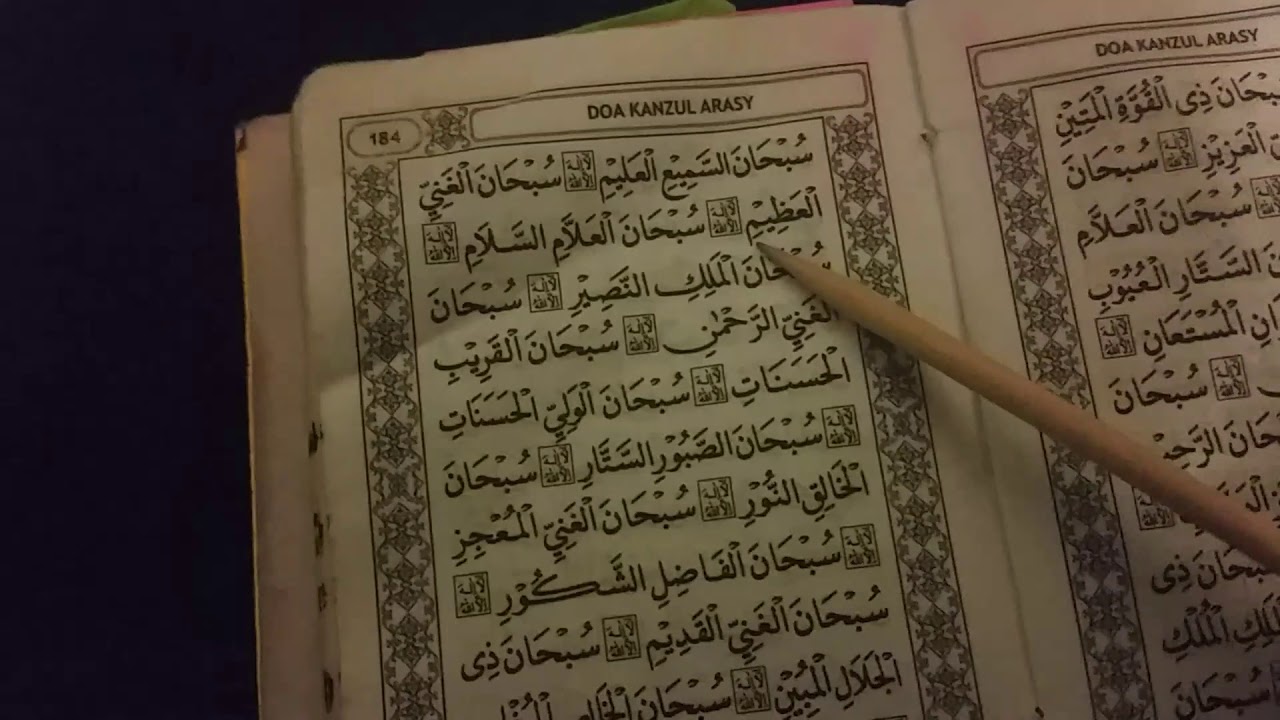 DOA KANZUL ARASY
184
سُبْحَانَ السَّمِيْعِ الْعَلِيْمِ لَا إِلٰهَ إِلَّا اللهُ سُبْحَانَ الْغَنِيِّ
الْعَظِيْمِ لَا إِلٰهَ إِلَّا اللهُ سُبْحَانَ الْعَلَّامِ السَّلَامِ لَا إِلٰهَ إِلَّا اللهُ
سُبْحَانَ الْمَلِكِ النَّصِيْرِ لَا إِلٰهَ إِلَّا اللهُ سُبْحَانَ
الْغَنِيِّ الرَّحْمٰنِ لَا إِلٰهَ إِلَّا اللهُ سُبْحَانَ الْقَرِيْبِ
الْحَسَنَاتِ لَا إِلٰهَ إِلَّا اللهُ سُبْحَانَ الْوَلِيِّ الْحَسَنَاتِ
لَا إِلٰهَ إِلَّا اللهُ سُبْحَانَ الصَّبُوْرِ السَّتَّارِ لَا إِلٰهَ إِلَّا اللهُ سُبْحَانَ
الْخَالِقِ النُّوْرِ لَا إِلٰهَ إِلَّا اللهُ سُبْحَانَ الْغَنِيِّ الْمُعْجِزِ
لَا إِلٰهَ إِلَّا اللهُ سُبْحَانَ الْفَاضِلِ الشَّكُوْرِ لَا إِلٰهَ إِلَّا اللهُ
سُبْحَانَ الْغَنِيِّ الْقَدِيْمِ لَا إِلٰهَ إِلَّا اللهُ سُبْحَانَ ذِى
الْجَلَالِ الْمُبِيْنِ لَا إِلٰهَ إِلَّا اللهُ سُبْحَانَ
DOA KANZUL ARASY
سُبْحَانَ ذِى الْقُوَّةِ الْمَتِيْنِ
الْعَزِيْزِ لَا إِلٰهَ إِلَّا اللهُ سُبْحَانَ
لَا إِلٰهَ إِلَّا اللهُ سُبْحَانَ الْعَلَّامِ
السَّتَّارِ الْعُيُوْبِ
الْمُسْتَعَانِ لَا إِلٰهَ إِلَّا اللهُ
لَا إِلٰهَ إِلَّا اللهُ سُبْحَانَ
لَا إِلٰهَ إِلَّا اللهُ
سُبْحَانَ ذِى
الْمُلْكِ
سُبْحَانَ